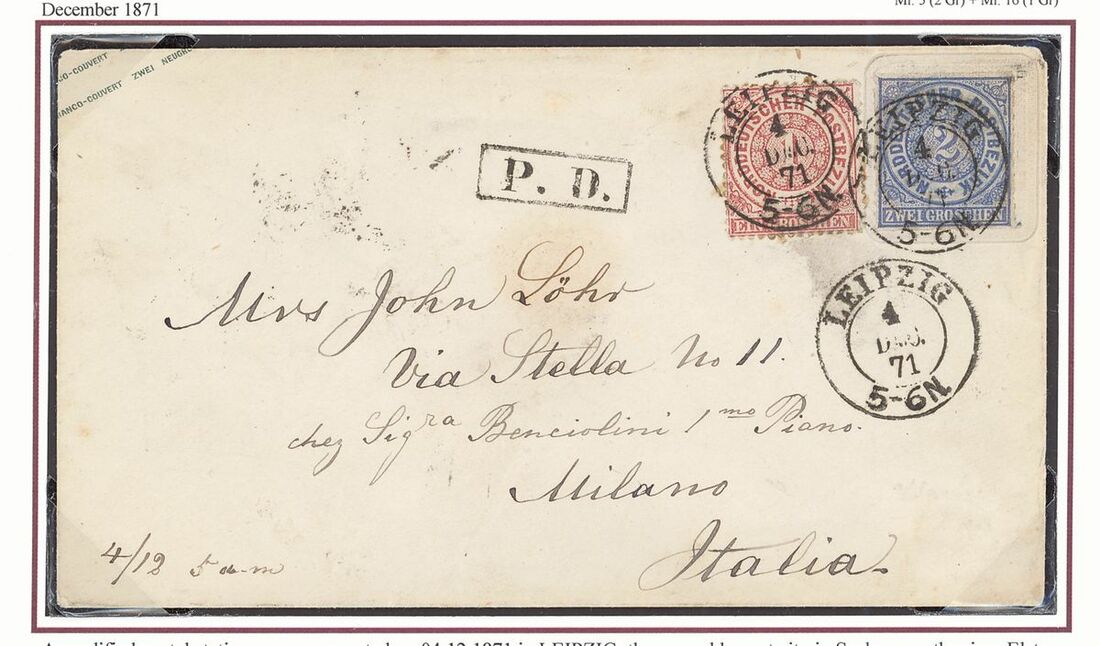 December 1871
CO-COUVERT
RANCO-COUVERT ZWEI NEUGRO
P. D.
LEIPZIG
4
71
5-6N.
NORDDEUTSCHER POSTBEZIRK
1
EIN GROSCHEN
LEIPZIG
4
5-6N.
NORDDEUTSCHER POSTBEZIRK
2
ZWEI GROSCHEN
LEIPZIG
4
71
5-6N.
Mrs John Löhr
Via Stella No 11.
chez Sigra Benciolini 1mo Piano.
Milano
Italia.
4/12 5 a-m